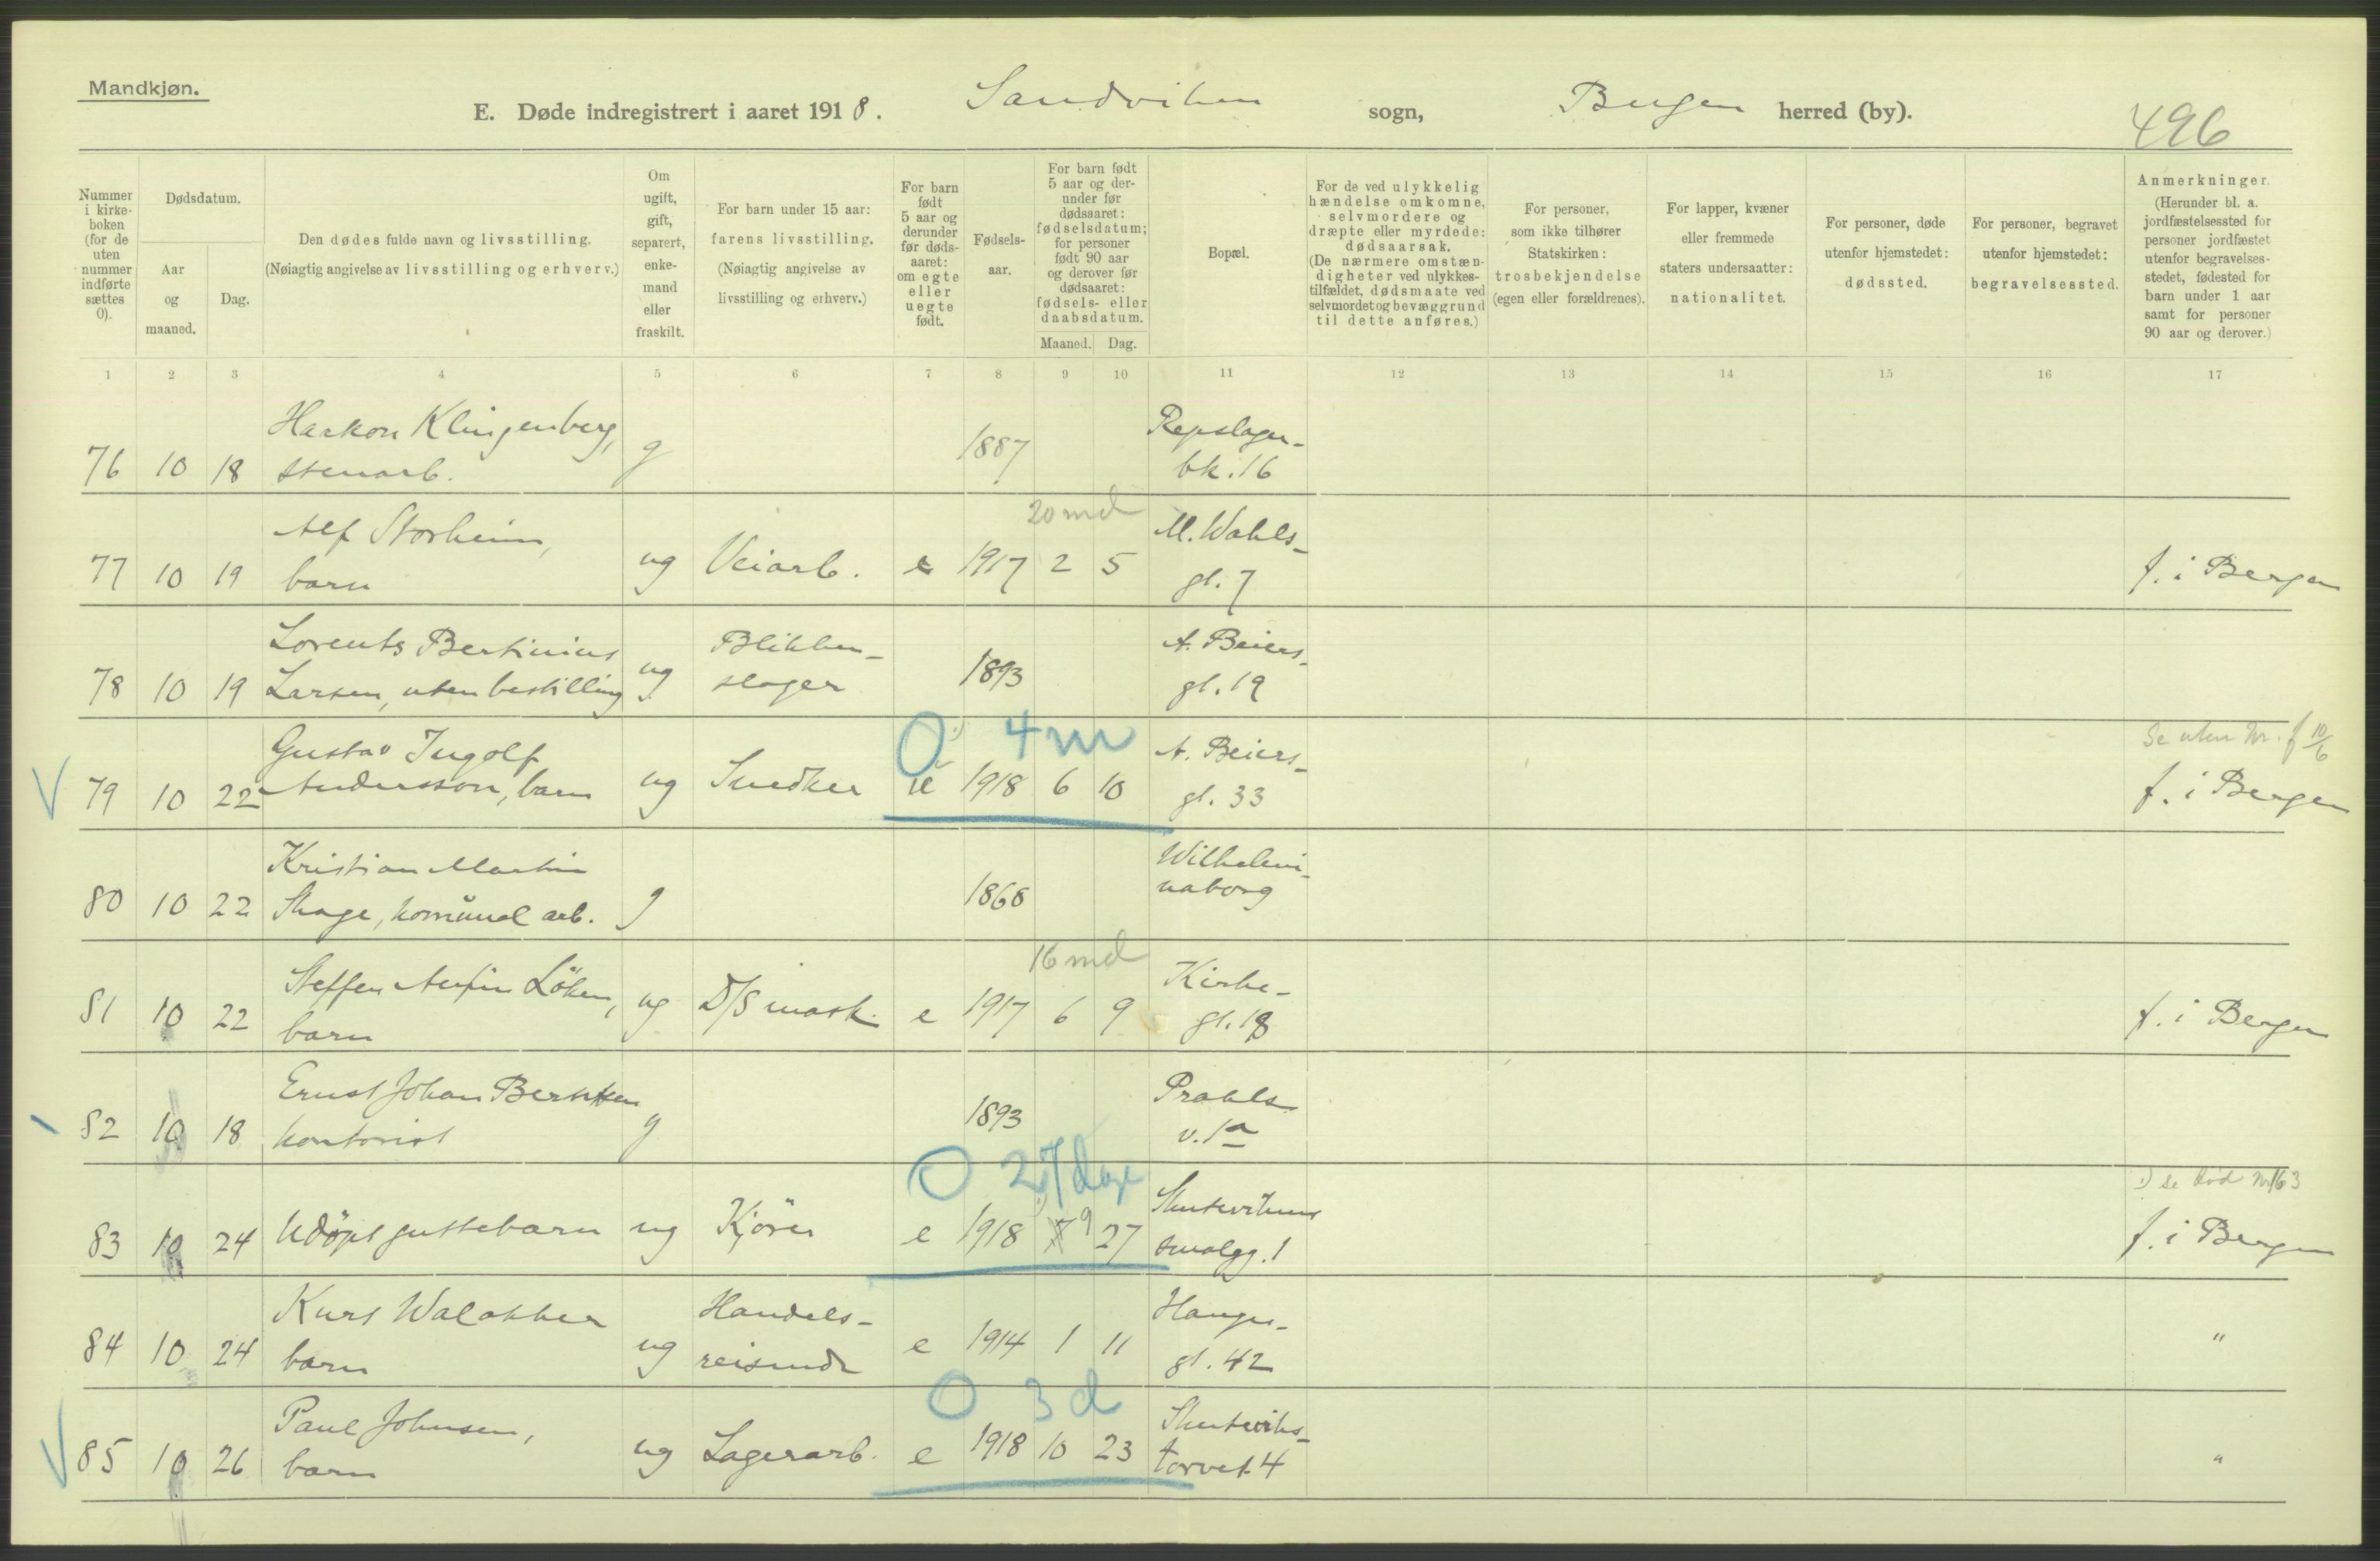 Mandkjøn.
E. Døde indregistrert i aaret 1918. Sandviken sogn, Bergen herred (by).
496
Nummer i kirke-boken (for de uten nummer indførte sættes 0).
Dødsdatum.
Aar og maaned.
Dag.
Den dødes fulde navn og livsstilling.
(Nøiagtig angivelse av livsstilling og erhverv.)
Om ugift, gift, separert, enke-mand eller fraskilt.
For barn under 15 aar: farens livsstilling.
(Nøiagtig angivelse av livsstilling og erhverv.)
For barn født 5 aar og derunder før døds-aaret: om egte eller uegte født.
Fødsels-aar.
For barn født 5 aar og der-under før dødsaaret: fødselsdatum; for personer født 90 aar og derover før dødsaaret: fødsels- eller daabsdatum.
Maaned. Dag.
Bopæl.
For de ved ulykkelig hændelse omkomne, selvmordere og dræpte eller myrdede: dødsaarsak.
(De nærmere omstæn-digheter ved ulykkes-tilfældet, dødsmaate ved selvmordet og bevæggrund til dette anføres.)
For personer, som ikke tilhører Statskirken: trosbekjendelse (egen eller forældrenes).
For lapper, kvæner eller fremmede staters undersaatter: nationalitet.
For personer, døde utenfor hjemstedet: dødssted.
For personer, begravet utenfor hjemstedet: begravelsessted.
Anmerkninger.
(Herunder bl. a. jordfæstelsessted for personer jordfæstet utenfor begravelses-stedet, fødested for barn under 1 aar samt for personer 90 aar og derover.)
1 2 3 4 5 6 7 8 9 10 11 12 13 14 15 16 17
Haakon Klingenberg, Repslager-
76 10 18 stenarb. g 1887 bk. 16
20 md
Alf Storheim, M. Wahls-
77 10 19 barn ug Veiarb. e 1917 2 5 gt. 7 f. i Bergen
Lorents Bertinius Blikken- A. Beiers-
78 10 19 Larsen, uten bestilling ug slager 1893 gt. 19
O 4 m Se uten Nr. f 10/6
Gustav Ingolf A. Beiers-
79 10 22 Andersson, barn ug Snedker ue 1918 6 10 gt. 33 f. i Bergen
Kristian Martin Wilhelmi-
80 10 22 Skage, komunal arb. g 1868 naborg
16 md
Steffen Anfin Löken, Kirke-
81 10 22 barn ug D/S mask. e 1917 6 9 gt. 18 f. i Bergen
Ernst Johan Berntsen Prahls
82 10 18 kontorist g 1893 v. 1a
O 27 dage 1) se død Nr 163
Skutevikens
83 10 24 Udöpt guttebarn ug Kjörer e 1918 9 27 smalgg. 1 f. i Bergen
Kurt Walakker Handels- Hauges-
84 10 24 barn ug reisende e 1914 1 11 gt. 42 "
O 3 d
Paul Johnsen, Skuteviks-
85 10 26 barn ug Lagerarb. e 1918 10 23 torvet 4 "